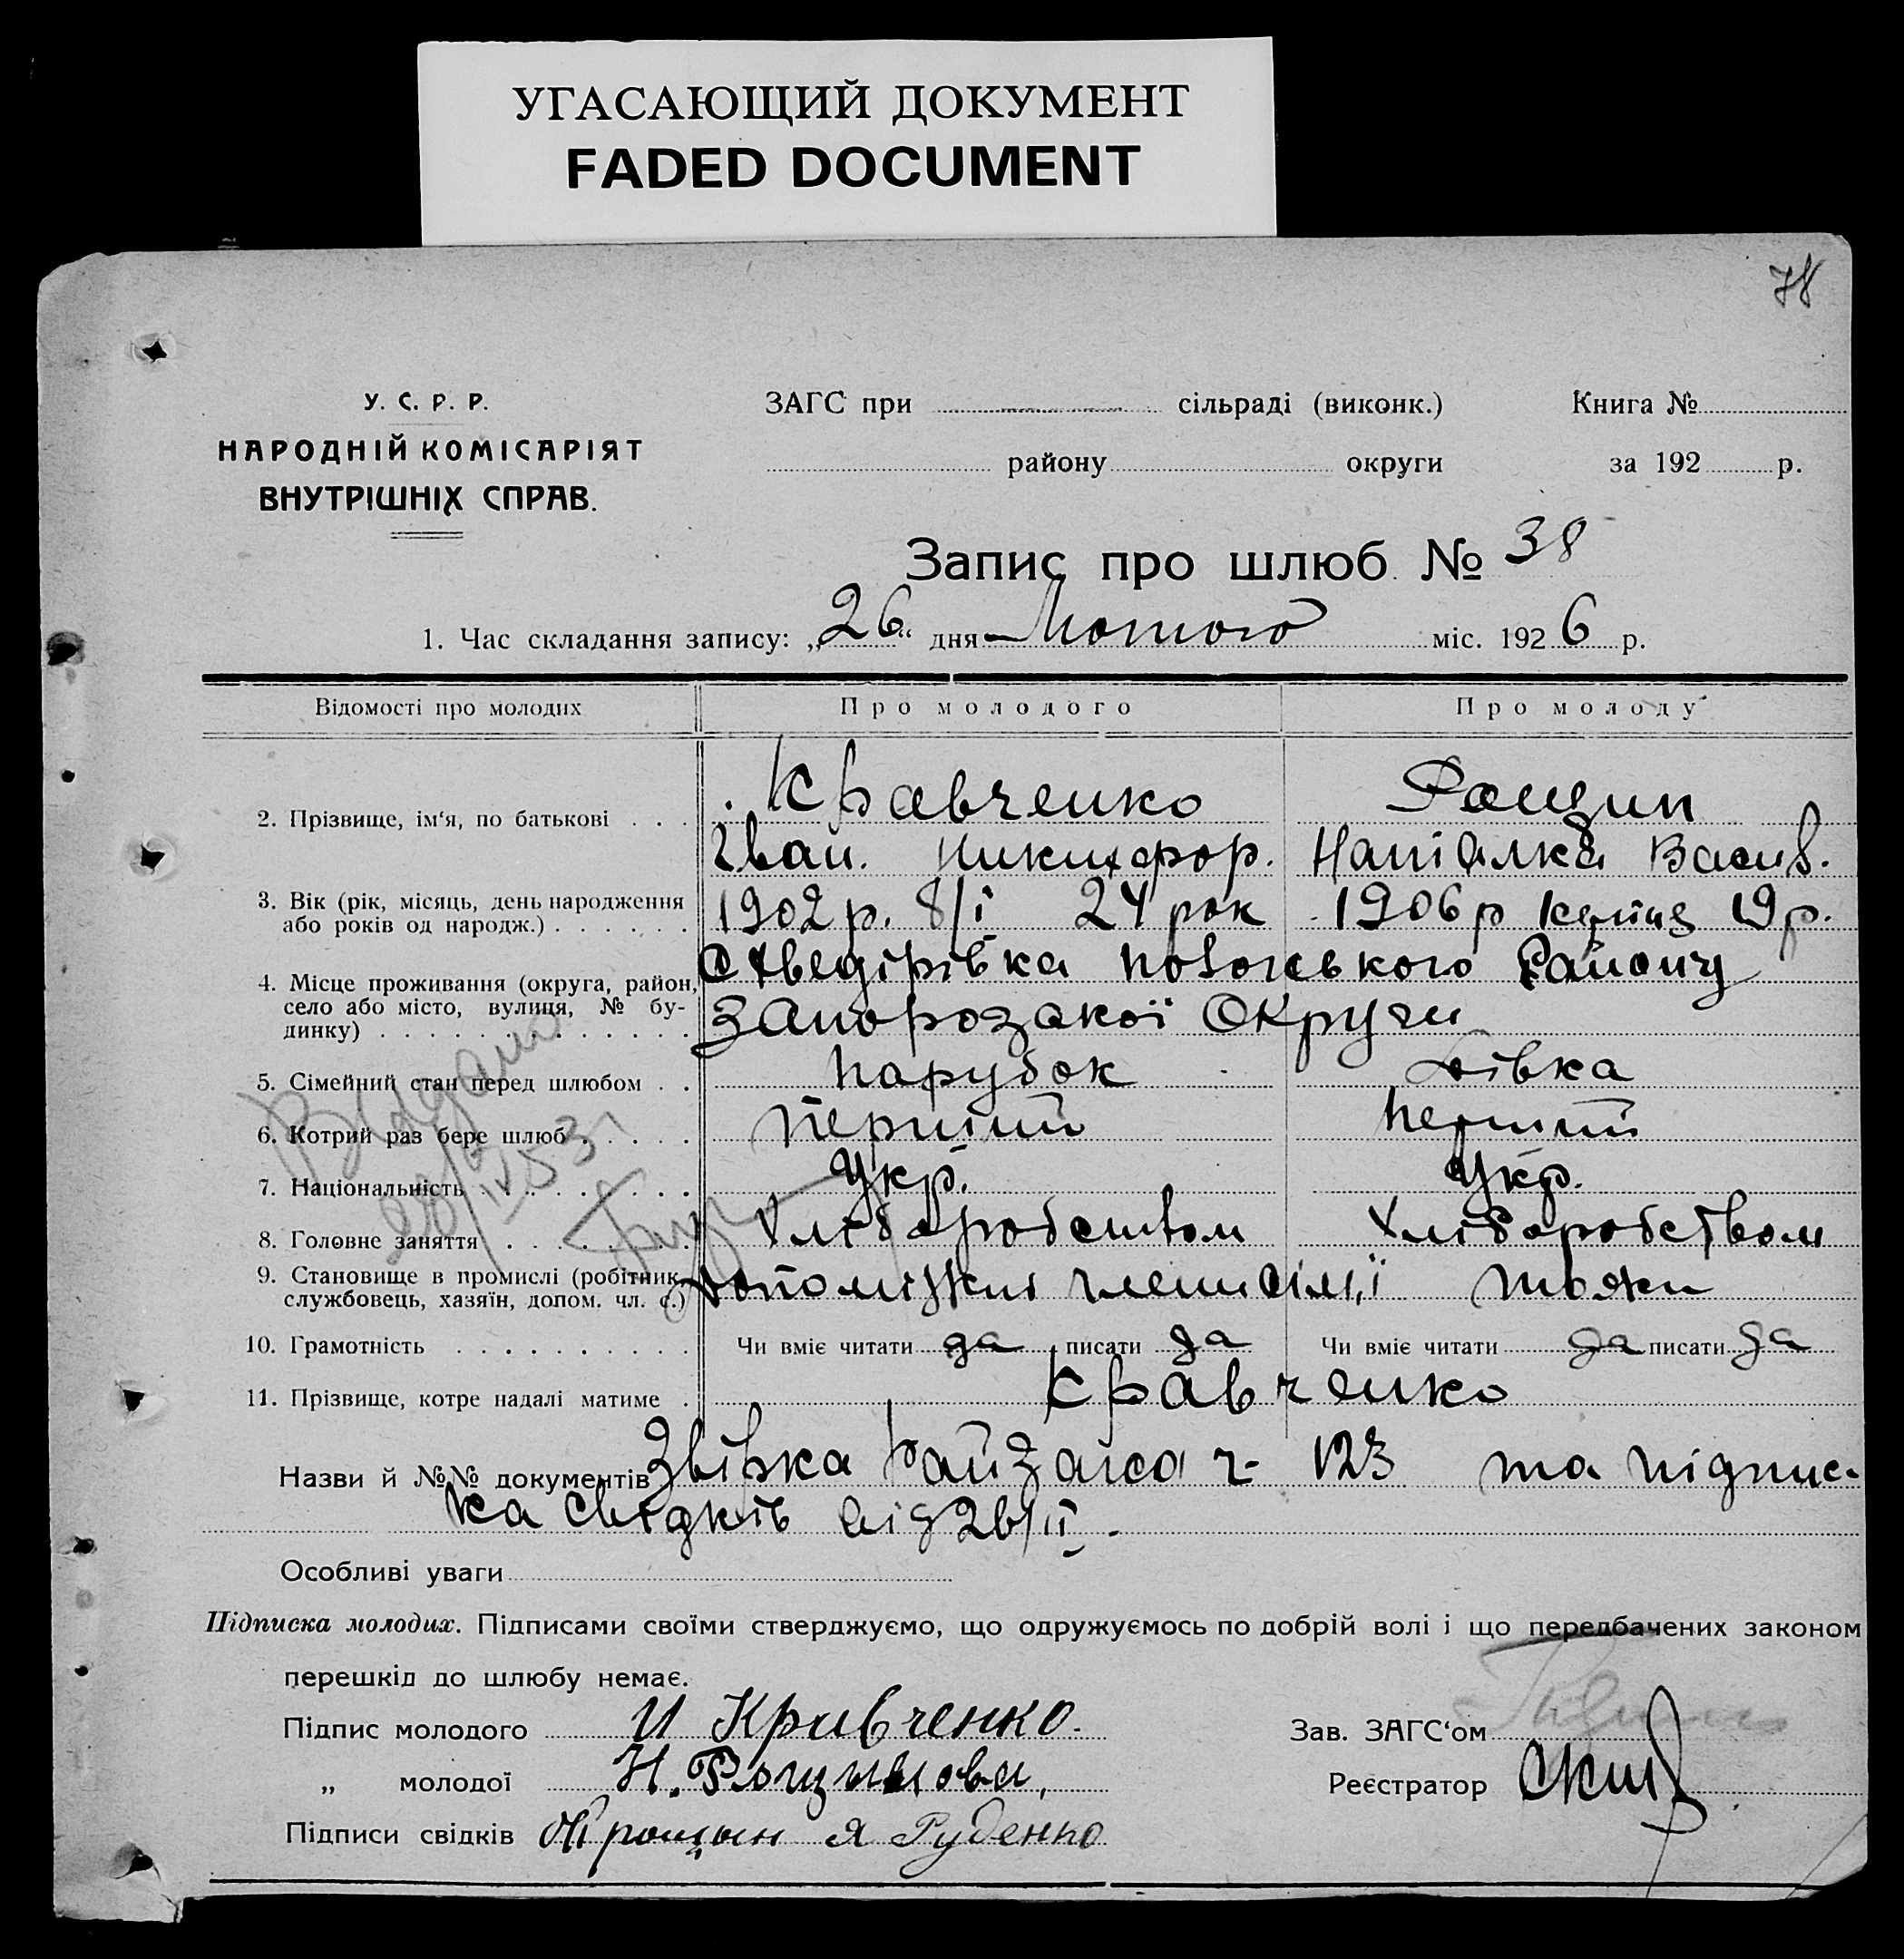 УГАСАЮЩИЙ ДОКУМЕНТ
FADED DOCUMENT
78
У. С. Р. Р.
НАРОДНІЙ КОМІСАРІЯТ
ВНУТРІШНІХ СПРАВ.
ЗАГС при сільраді (виконк.) Книга №
району округи за 192 р.
Запис про шлюб № 38
1. Час складання запису: „26“ дня Лютого міс. 1926 р.
Відомості про молодих Про молодого Про молоду
2. Прізвище, ім‘я, по батькові . . . Кравченко Рощин
Іван. Никифор. Наталка Васив.
3. Вік (рік, місяць, день народження
або років од народж.) . . . . . . 1902 р. 8/І 24 рок 1906 р 19 р.
4. Місце проживання (округа, район,
село або місто, вулиця, № бу-
динку) . . . . . . . . . . . . .
району
Запорозакої Округи
5. Сімейний стан перед шлюбом . . Парубок Дівка
6. Котрий раз бере шлюб . . . . . Перший Перший
7. Національність . . . . . . . . Укр. Укр.
8. Головне заняття . . . . . . . Хліборобством Хліборобством
9. Становище в промислі (робітник,
службовець, хазяїн, допом. чл. с.) сімї
10. Грамотність . . . . . . . . . . Чи вміє читати да писати да Чи вміє читати да писати да
11. Прізвище, котре надалі матиме . Кравченко
Назви й №№ документів Звірка Райзагса ч- 123 та підпис-
ка свідків від 26/ІІ.
Особливі уваги
Підписка молодих. Підписами своїми стверджуємо, що одружуємось по добрій волі і що передбачених законом
перешкід до шлюбу немає.
Підпис молодого И Кравченко.
„ молодої Н. Рощинова,
Підписи свідків Рощын Я Руденко
Зав. ЗАГС‘ом
Реєстратор
Выдано
28/IV 53